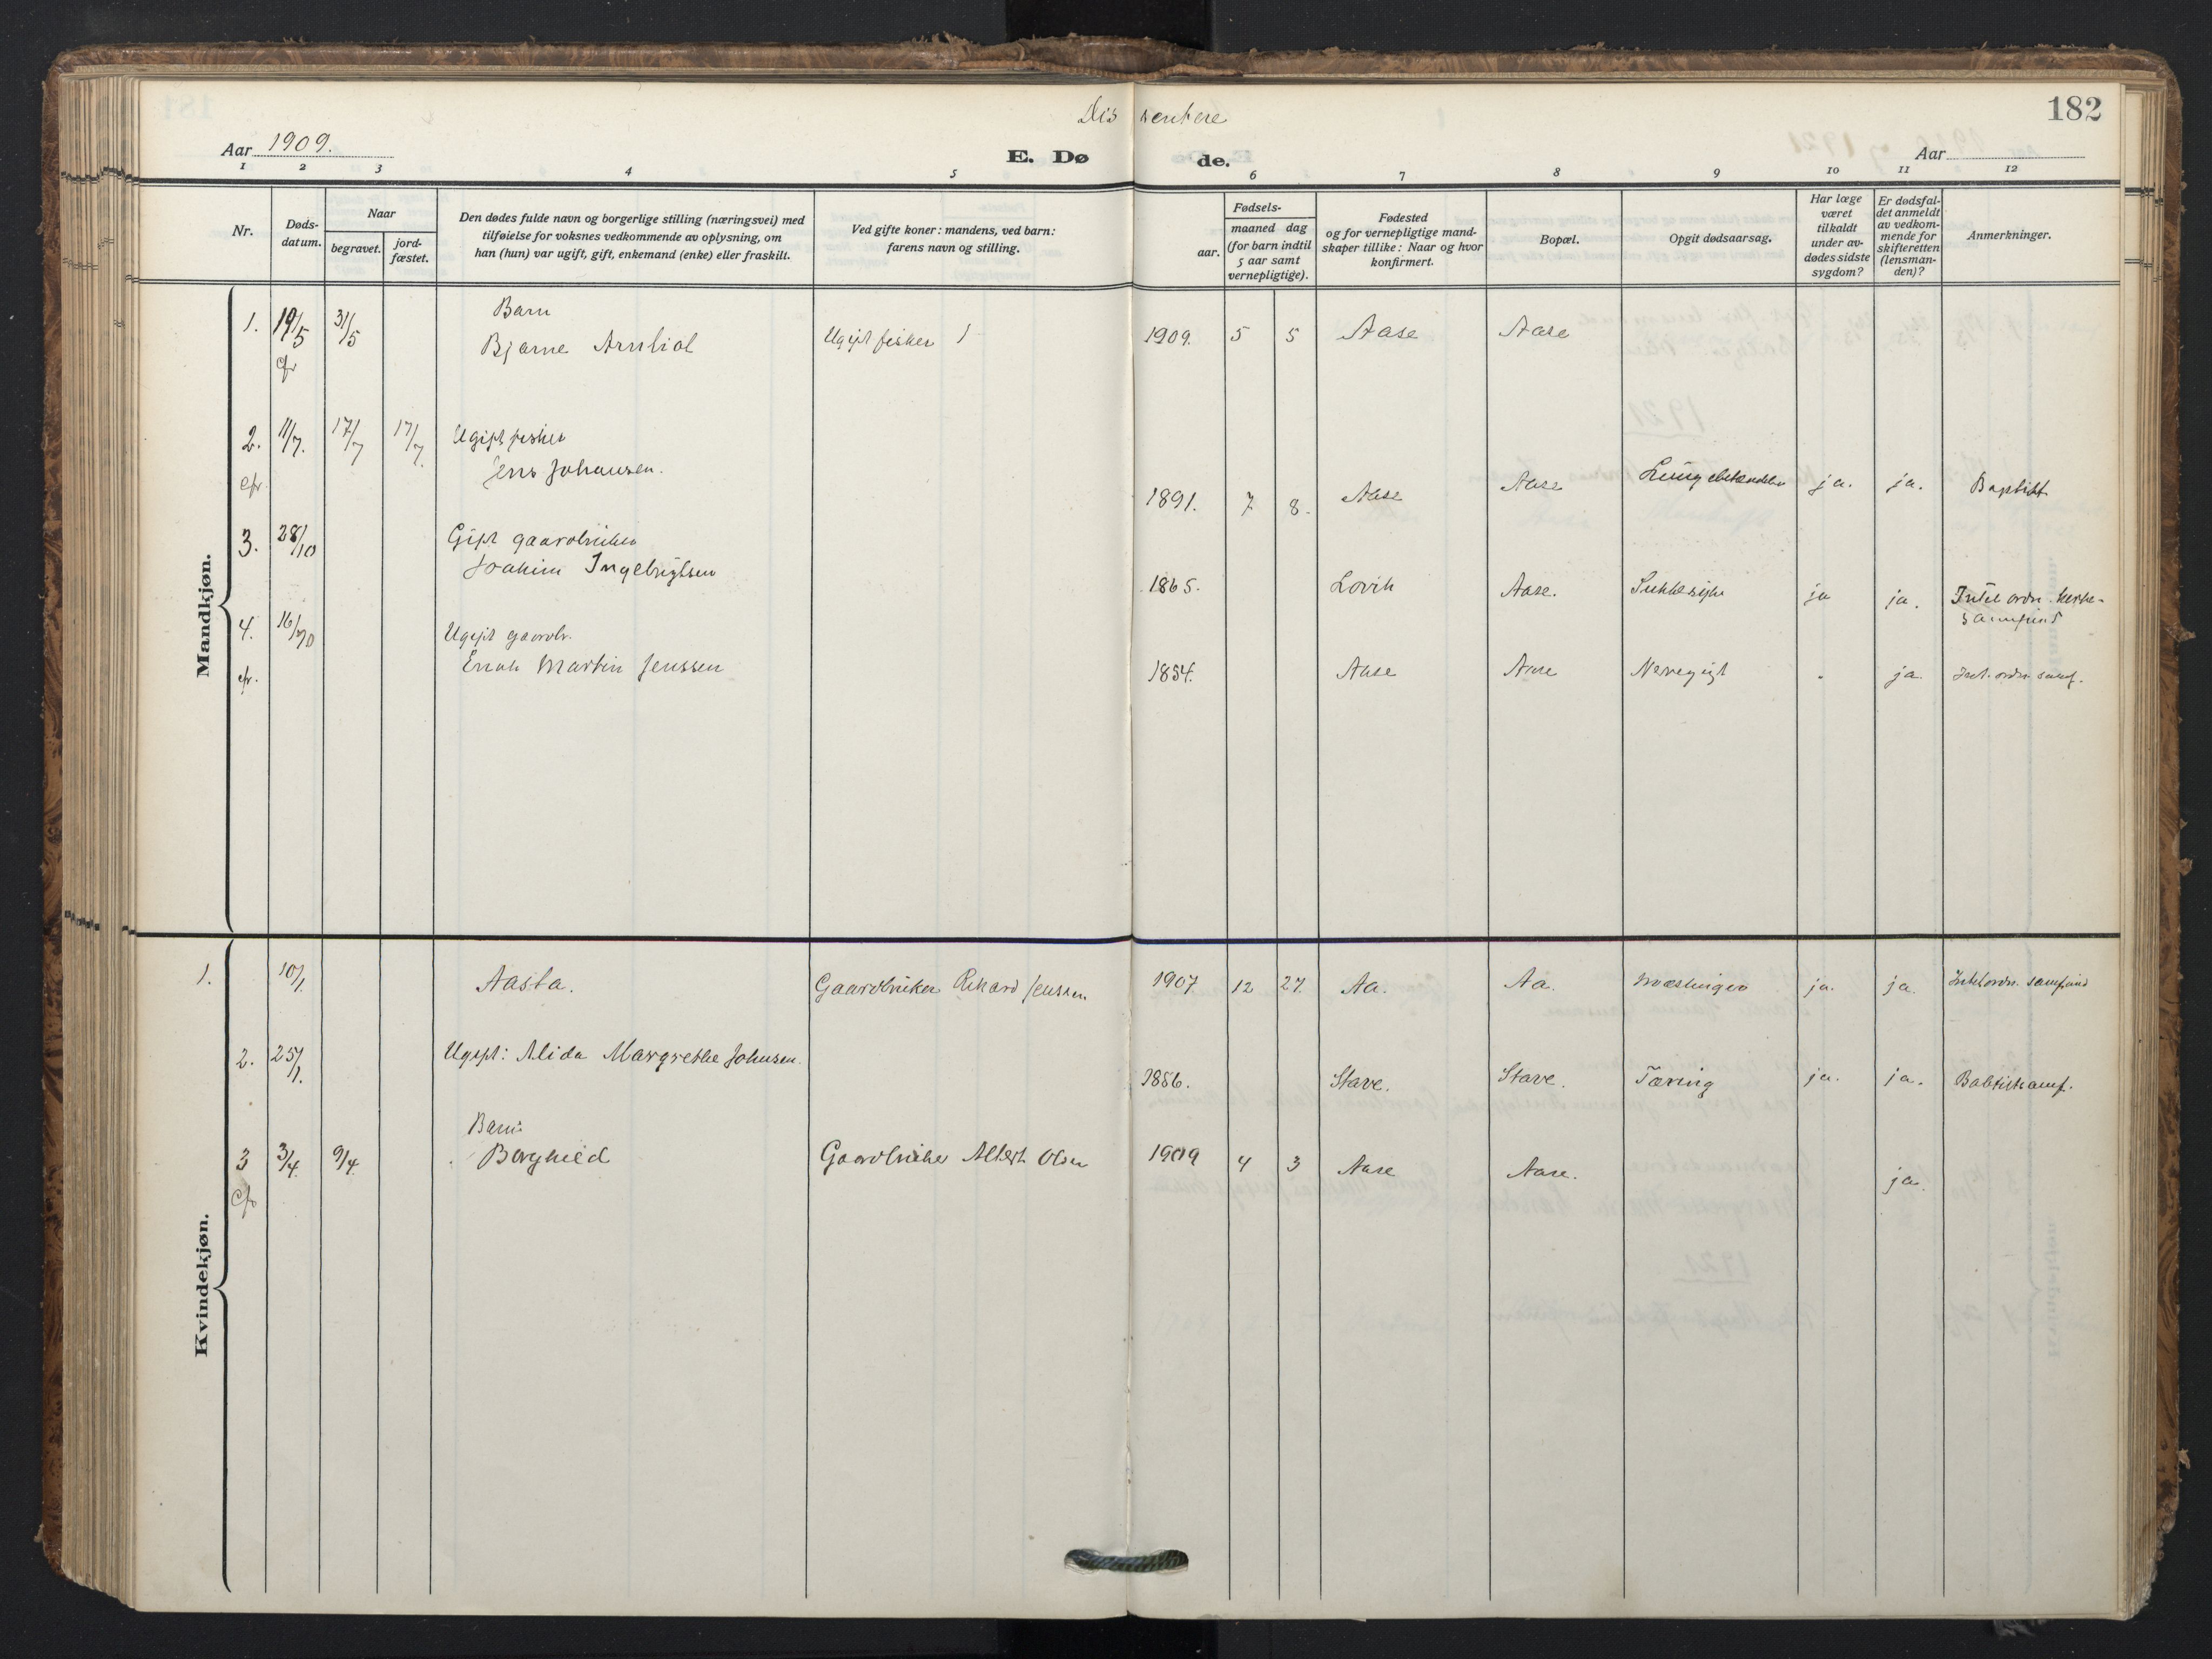 Dissentere
182
Aar 1909.
E. Døde.
Aar
1 2 3 4 5 6 7 8 9 10 11 12
Nr.
Døds-
datum.
Naar
begravet.
jord-
fæstet.
Den dødes fulde navn og borgerlige stilling (næringsvei) med
tilføielse for voksnes vedkommende av oplysning, om
han (hun) var ugift, gift, enkemand (enke) eller fraskilt.
Ved gifte koner: mandens, ved barn:
farens navn og stilling.
Fødsels-
aar.
maaned dag
(for barn indtil
5 aar samt
vernepligtige).
Fødested
og for vernepligtige mand-
skaper tillike: Naar og hvor
konfirmert.
Bopæl.
Opgit dødsaarsag.
Har læge
været
tilkaldt
under av-
dødes sidste
sygdom?
Er dødsfal-
det anmeldt
av vedkom-
mende for
skifteretten
(lensman-
den)?
Anmerkninger.
Mandkjøn.
Barn
1. 19/5 31/5 Bjarne Ugift fisker 1909. 5 5 Aase Aase
cfr
2. 11/7. 17/7 17/7. Ugift fisker
cfr Jens Johansen. 1891. 7 8. Aase Aase ja. ja. Baptist
3. 28/10 Gift gaardbruker
Joakim Ingebrigtsen 1865. Lovik Aase. Sukkersyke ja ja. Intet ordn. kirke-
samfund
4. Ugift gaardbr.
cfr. Martin Jenssen 1854. Aase Aase ja Int. ordn. samf.
Kvindekjøn.
1. 10/1. Aasta. Gaardbruker Rikard Jenssen 1907 12 27. Aa. Aa. Mæslinger ja. ja. Intet ordn. samfund
2. 25/1. Ugift: Alida Margrethe Johnsen. 1856. Stave. Stave. Tæring ja. ja. Babtistsamf.
Barn:
3 3/4. 9/4. Borghild Gaardbruker Albert Olsen 1909 4 3 Aase Aase. ja.
cfr